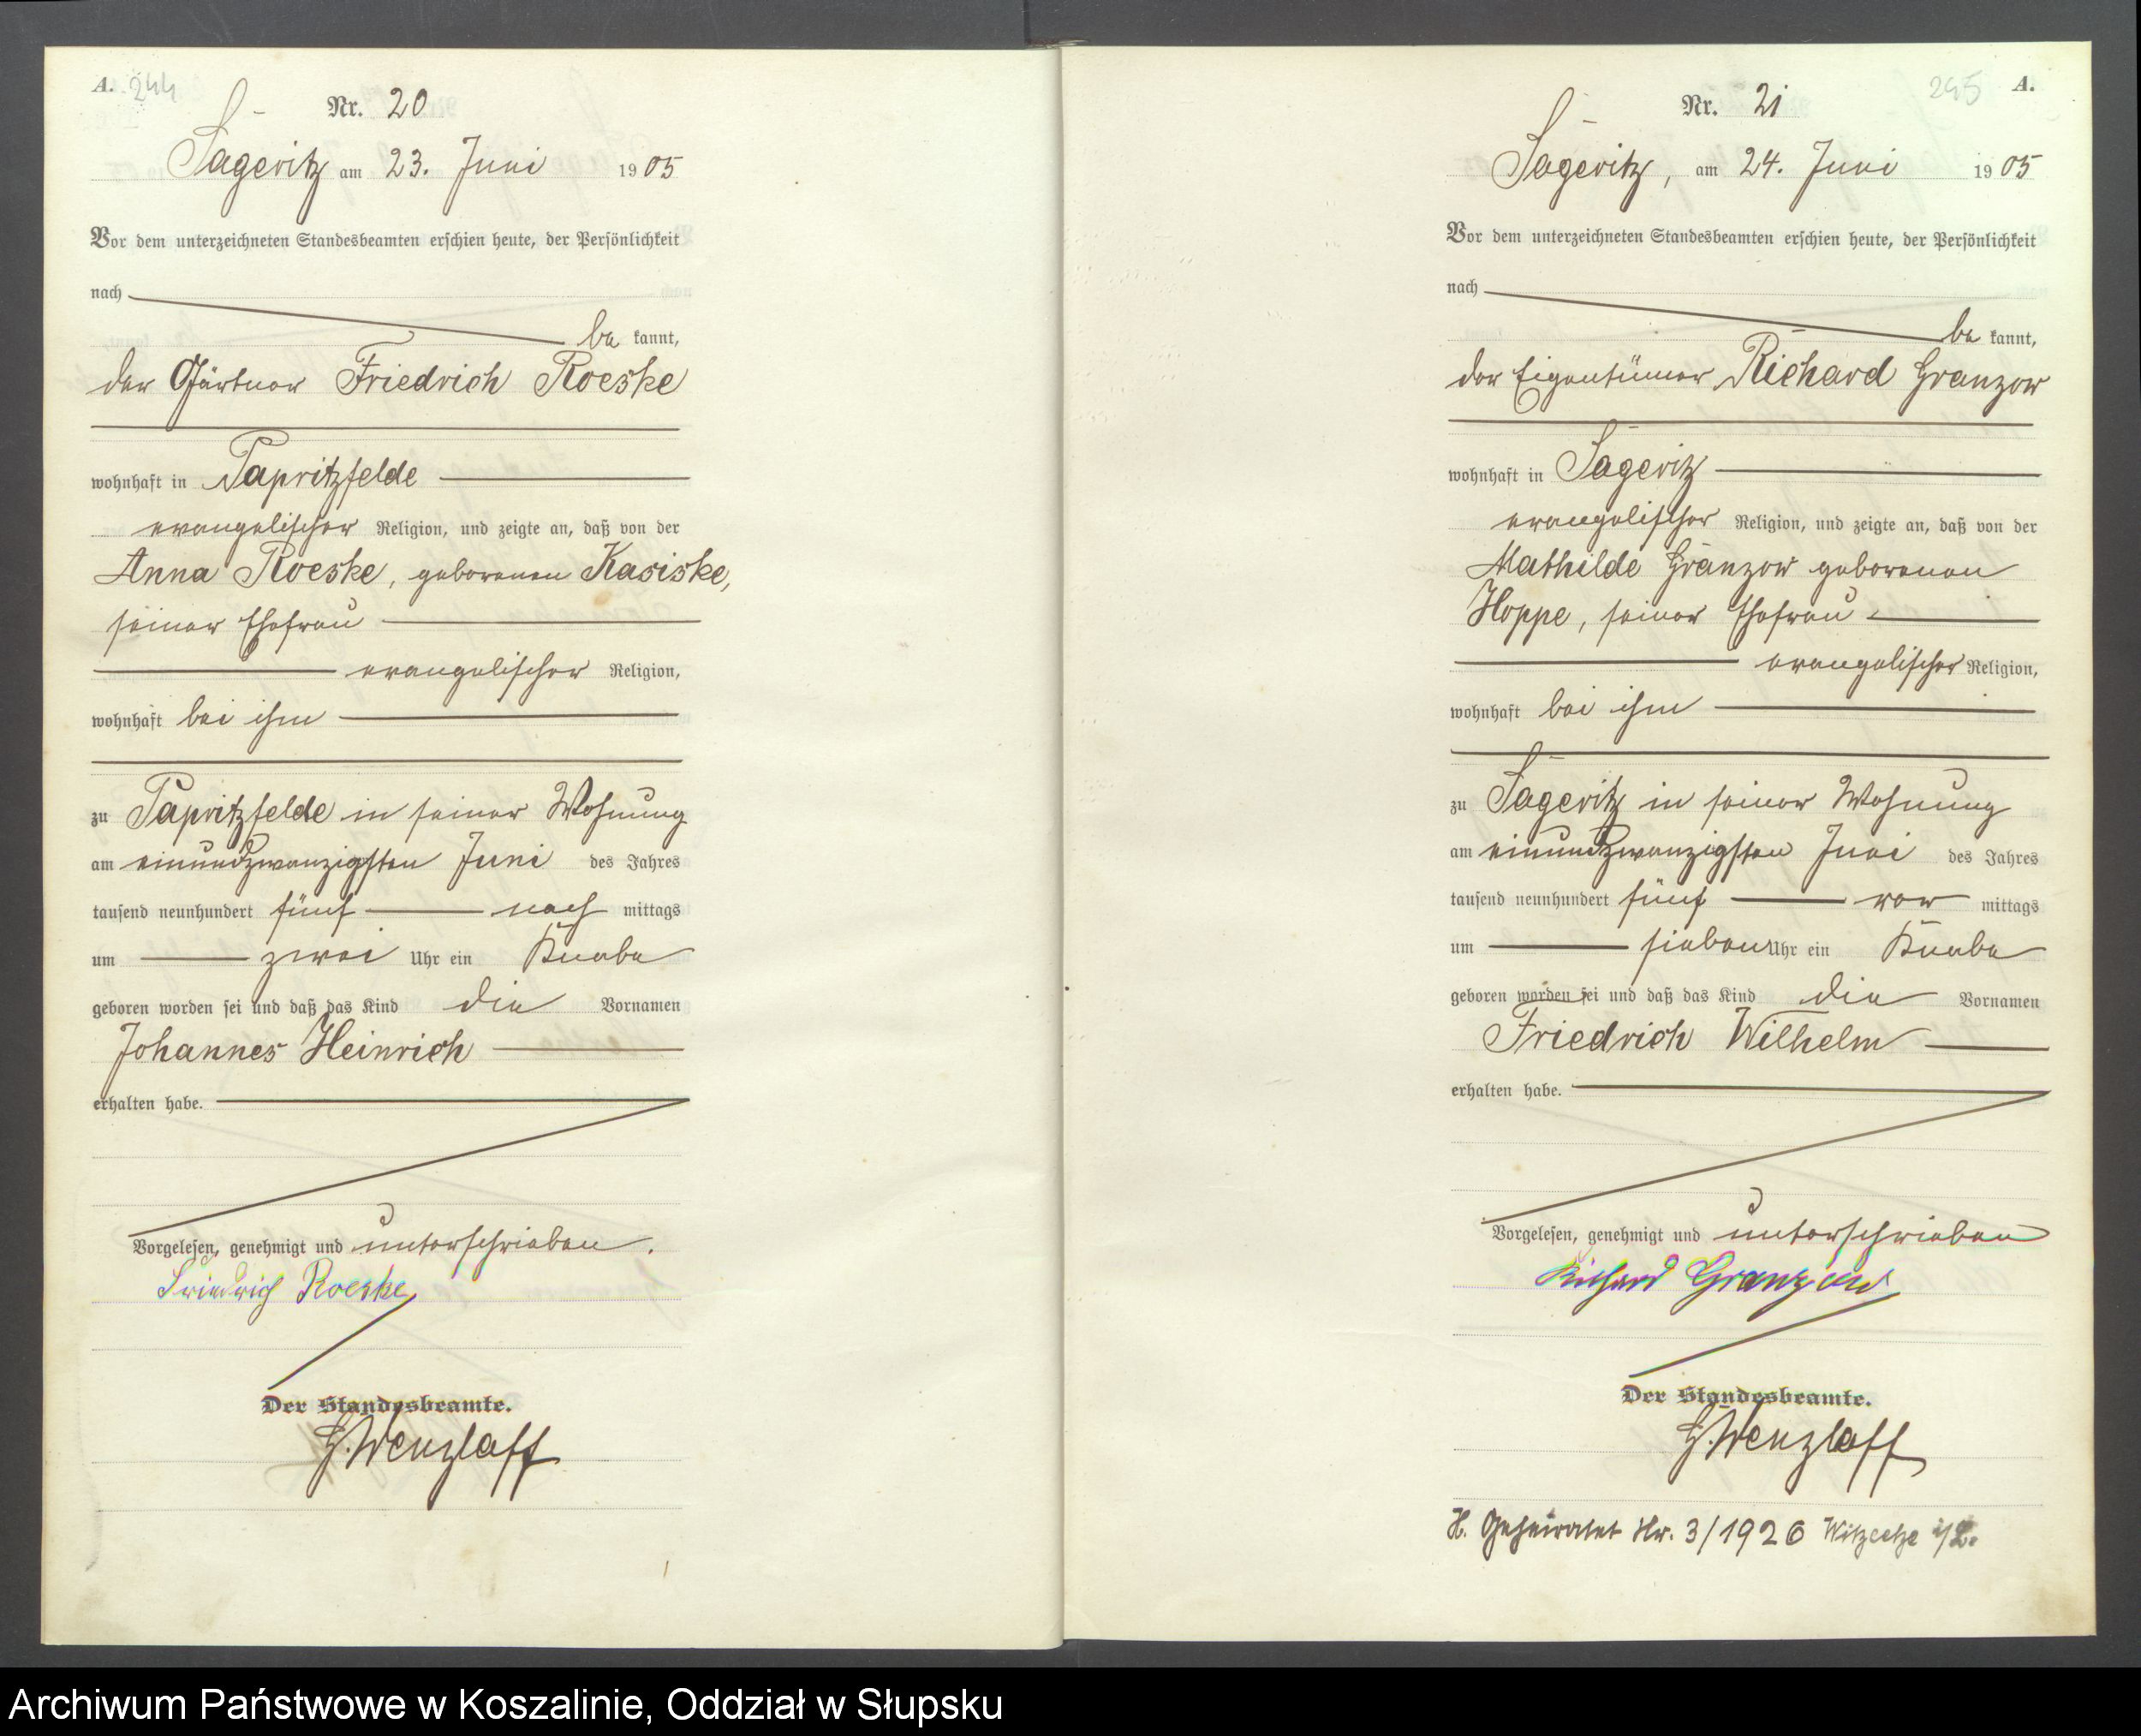 A. 244
Nr. 20
Sageritz am 23. Juni 1905
Vor dem unterzeichneten Standesbeamten erschien heute, der Persönlichkeit
nach
be kannt,
der Gärtner Friedrich Roeske
wohnhaft in Papritzfelde
evangelischer Religion, und zeigte an, daß von der
Anna Roeske, geborenen Kasiske,
seiner Ehefrau
evangelischer Religion,
wohnhaft bei ihm
zu Papritzfelde in seiner Wohnung
am einundzwanzigsten Juni des Jahres
tausend neunhundert fünf nach mittags
um zwei Uhr ein Knabe
geboren worden sei und daß das Kind die Vornamen
Johannes Heinrich
erhalten habe.
Vorgelesen, genehmigt und unterschrieben.
Friedrich Roeske
Der Standesbeamte.
G. Wenzlaff
245 A.
Nr. 21
Sageritz, am 24. Juni 1905
Vor dem unterzeichneten Standesbeamten erschien heute, der Persönlichkeit
nach
be kannt,
der Eigentümer Richard Granzow
wohnhaft in Sageritz
evangelischer Religion, und zeigte an, daß von der
Mathilde Granzow geborenen
Hoppe, seiner Ehefrau
evangelischer Religion,
wohnhaft bei ihm
zu Sageritz in seiner Wohnung
am einundzwanzigsten Juni des Jahres
tausend neunhundert fünf vor mittags
um sieben Uhr ein Knabe
geboren worden sei und daß das Kind die Vornamen
Friedrich Wilhelm
erhalten habe.
Vorgelesen, genehmigt und unterschrieben
Richard Granzow
Der Standesbeamte.
G. Wenzlaff
H. Geheiratet Nr. 3/1926
Archiwum Państwowe w Koszalinie, Oddział w Słupsku